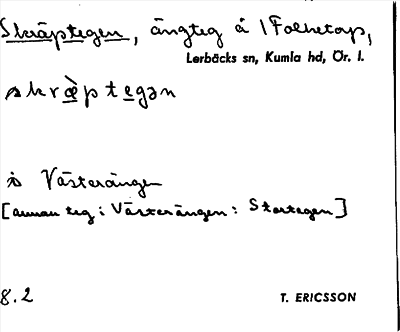 Skräptegen, ängteg å 1 Folketorp,
Lerbäcks sn, Kumla hd, Ör. l.
skræ̀ptegən
i Västerängen
[annan teg i Västerängen: Stortegen]
8.2
T. ERICSSON